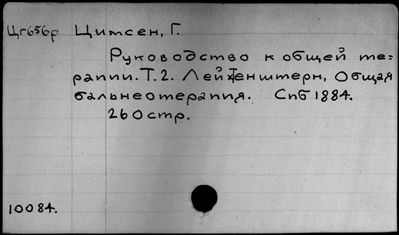 Цг656р Цимсен, Г.
Руководство к общей те=
рапии. Т.2. Лейхтенштерн, Общая
бальнеотерапия. Спб 1884.
260стр.
10084.